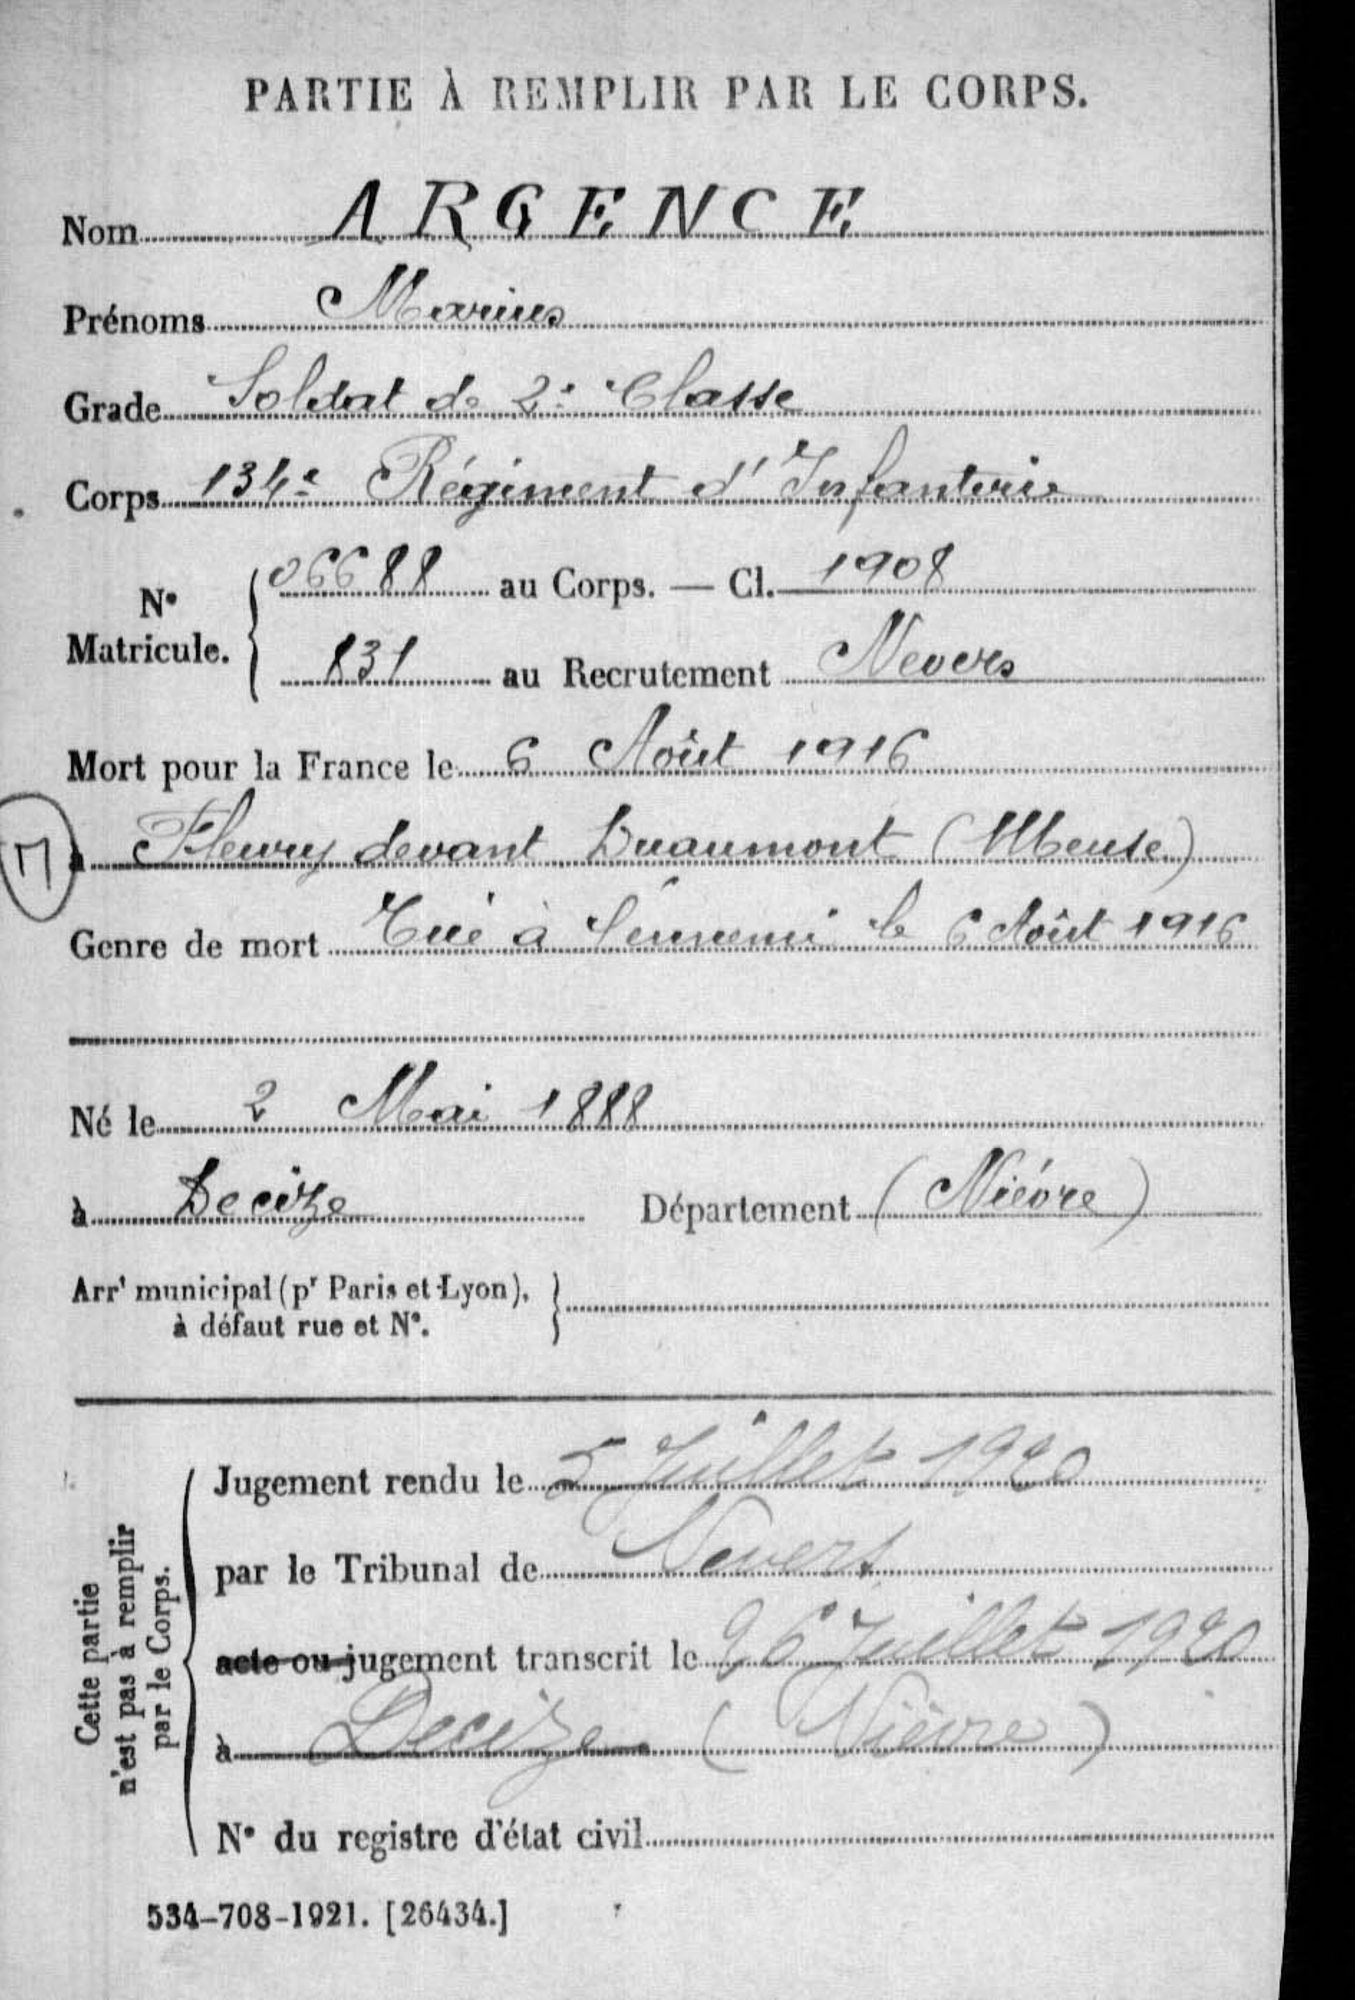 PARTIE À REMPLIR PAR LE CORPS.
Nom ARGENCE
Prénoms Marius
Grade Soldat de 2e Classe
Corps 134e Régiment d'Infanterie
N° Matricule. { 06688 au Corps. — Cl. 1908
831 au Recrutement Nevers
Mort pour la France le 6 Août 1916
à Fleury devant Duaumont (Meuse)
Genre de mort Tué à l'ennemi le 6 Août 1916
Né le 2 Mai 1888
à Decize Département (Nièvre)
Arrt municipal (pr Paris et Lyon),
à défaut rue et N°.
Cette partie
n'est pas à remplir
par le Corps.
Jugement rendu le 5 Juillet 1920
par le Tribunal de Nevers
acte ou jugement transcrit le 26 Juillet 1920
à Decize (Nièvre)
N° du registre d'état civil
534-708-1921. [26434.]